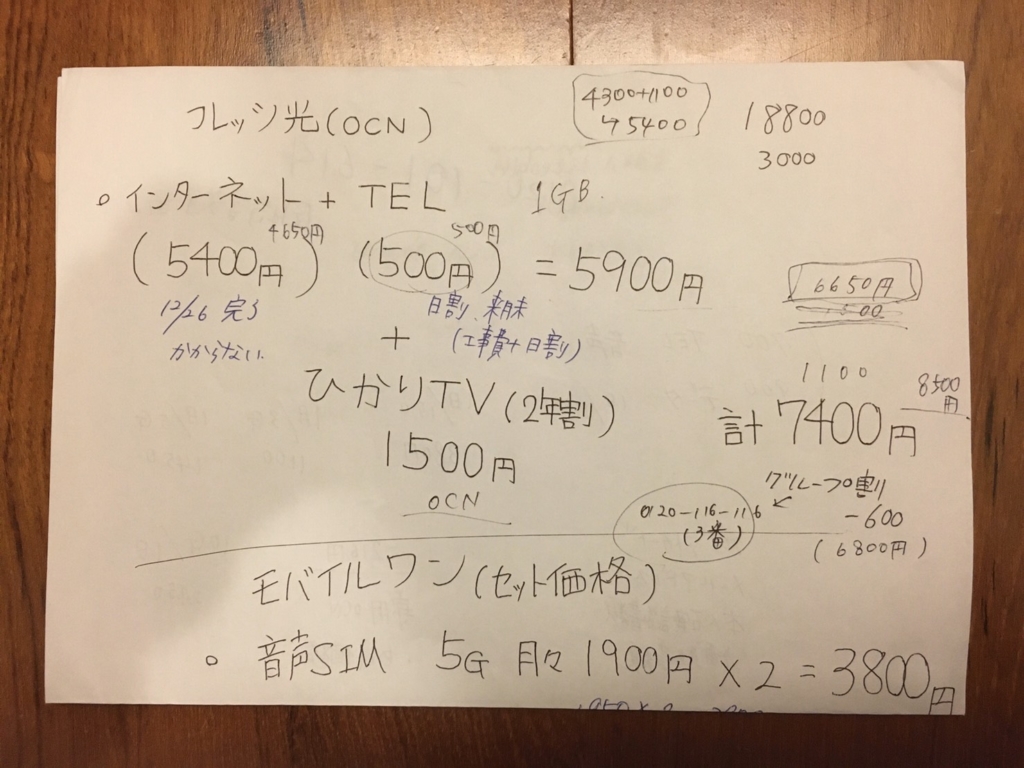 フレッツ光(OCN)
4300+1100
↳5400
18800
3000
○インターネット + TEL 1GB.
4650円 500円
(5400円) (500円) = 5900円
6650円
12/26 完了
かからない
日割 来月末
(工事費+日割)
+
ひかりTV(2年割)
1500円
OCN
1100
8500円
計 7400円
グループ割
-600
(6800円)
0120-116-116
(3番)
モバイルワン(セット価格)
○音声SIM 5G 月々1900円 × 2 = 3800円